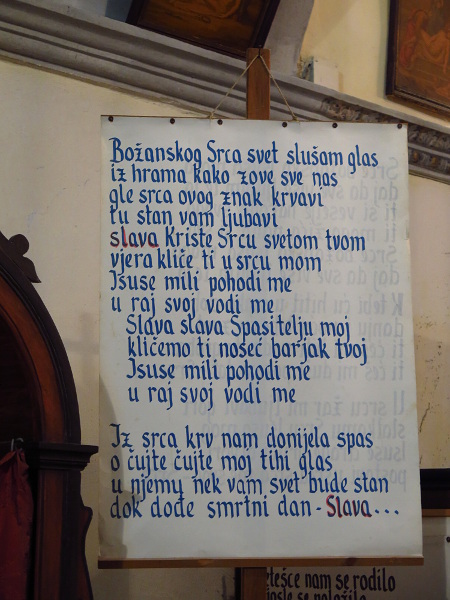 Božanskog Srca svet slušam glas
iz hrama kako zove sve nas
gle srca ovog znak krvavi
tu stan vam ljubavi
slava Kriste Srcu svetom tvom
vjera kliče ti u srcu mom
Isuse mili pohodi me
u raj svoj vodi me
Slava slava Spasitelju moj
kličemo ti noseć barjak tvoj
Isuse mili pohodi me
u raj svoj vodi me
Iz srca krv nam donijela spas
o čujte čujte moj tihi glas
u njemu nek vam svet bude stan
dok dođe smrtni dan - Slava...
nam se rodilo